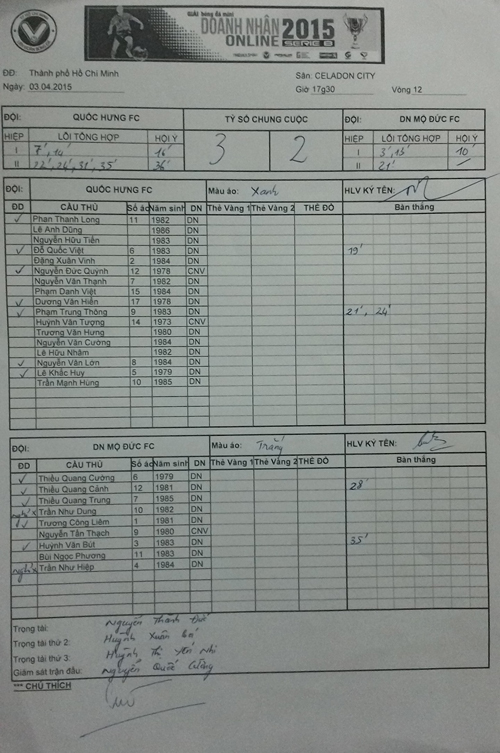 GIẢI bóng đá mini
DOANH NHÂN 2015
ONLINE SERIE B
ĐĐ: Thành phố Hồ Chí Minh Sân: CELADON CITY
Ngày: 03.04.2015 Giờ 17g30 Vòng 12
ĐỘI: QUỐC HƯNG FC TỶ SỐ CHUNG CUỘC ĐỘI: DN MỘ ĐỨC FC
HIỆP LỖI TỔNG HỢP HỘI Ý 3 2 HIỆP LỖI TỔNG HỢP HỘI Ý
I 7', 14' 16' I 3', 15' 10'
II 22', 24', 31', 35' 36' II 21'
ĐỘI: QUỐC HƯNG FC Màu áo: Xanh HLV KÝ TÊN:
ĐD CẦU THỦ Số áo Năm sinh DN Thẻ Vàng 1 Thẻ Vàng 2 THẺ ĐỎ Bàn thắng
✓ Phan Thanh Long 11 1982 DN
Lê Anh Dũng 1986 DN
Nguyễn Hữu Tiến 1983 DN
✓ Đỗ Quốc Việt 6 1983 DN 19'
Đặng Xuân Vinh 2 1984 DN
✓ Nguyễn Đức Quỳnh 12 1978 CNV
Nguyễn Văn Thạnh 7 1982 DN
Phạm Danh Việt 15 1984 DN
✓ Dương Văn Hiền 17 1978 DN
✓ Phạm Trung Thông 9 1983 DN 21', 24'
Huỳnh Văn Tượng 14 1973 CNV
Trương Văn Hưng 1980 DN
Nguyễn Văn Cường 1984 DN
Lê Hữu Nhâm 1982 DN
✓ Nguyễn Văn Lớn 8 1984 DN
✓ Lê Khắc Huy 5 1979 DN
Trần Mạnh Hùng 10 1985 DN
ĐỘI: DN MỘ ĐỨC FC Màu áo: Trắng HLV KÝ TÊN:
ĐD CẦU THỦ Số áo Năm sinh DN Thẻ Vàng 1 Thẻ Vàng 2 THẺ ĐỎ Bàn thắng
✓ Thiều Quang Cường 6 1979 DN
✓ Thiều Quang Cảnh 12 1981 DN 28'
✓ Thiều Quang Trung 7 1985 DN
nghỉ x Trần Như Dung 10 1982 DN
✓ Trương Công Liêm 1 1981 DN
Nguyễn Tấn Thạch 9 1980 CNV
✓ Huỳnh Văn Bút 3 1983 DN 35'
Bùi Ngọc Phương 11 1983 DN
nghỉ x Trần Như Hiệp 4 1984 DN
Trọng tài: Nguyễn Thanh
Trọng tài thứ 2: Huỳnh Xuân
Trọng tài thứ 3: Huỳnh Thị Yến Nhi
Giám sát trận đấu: Nguyễn Quốc
*** CHÚ THÍCH